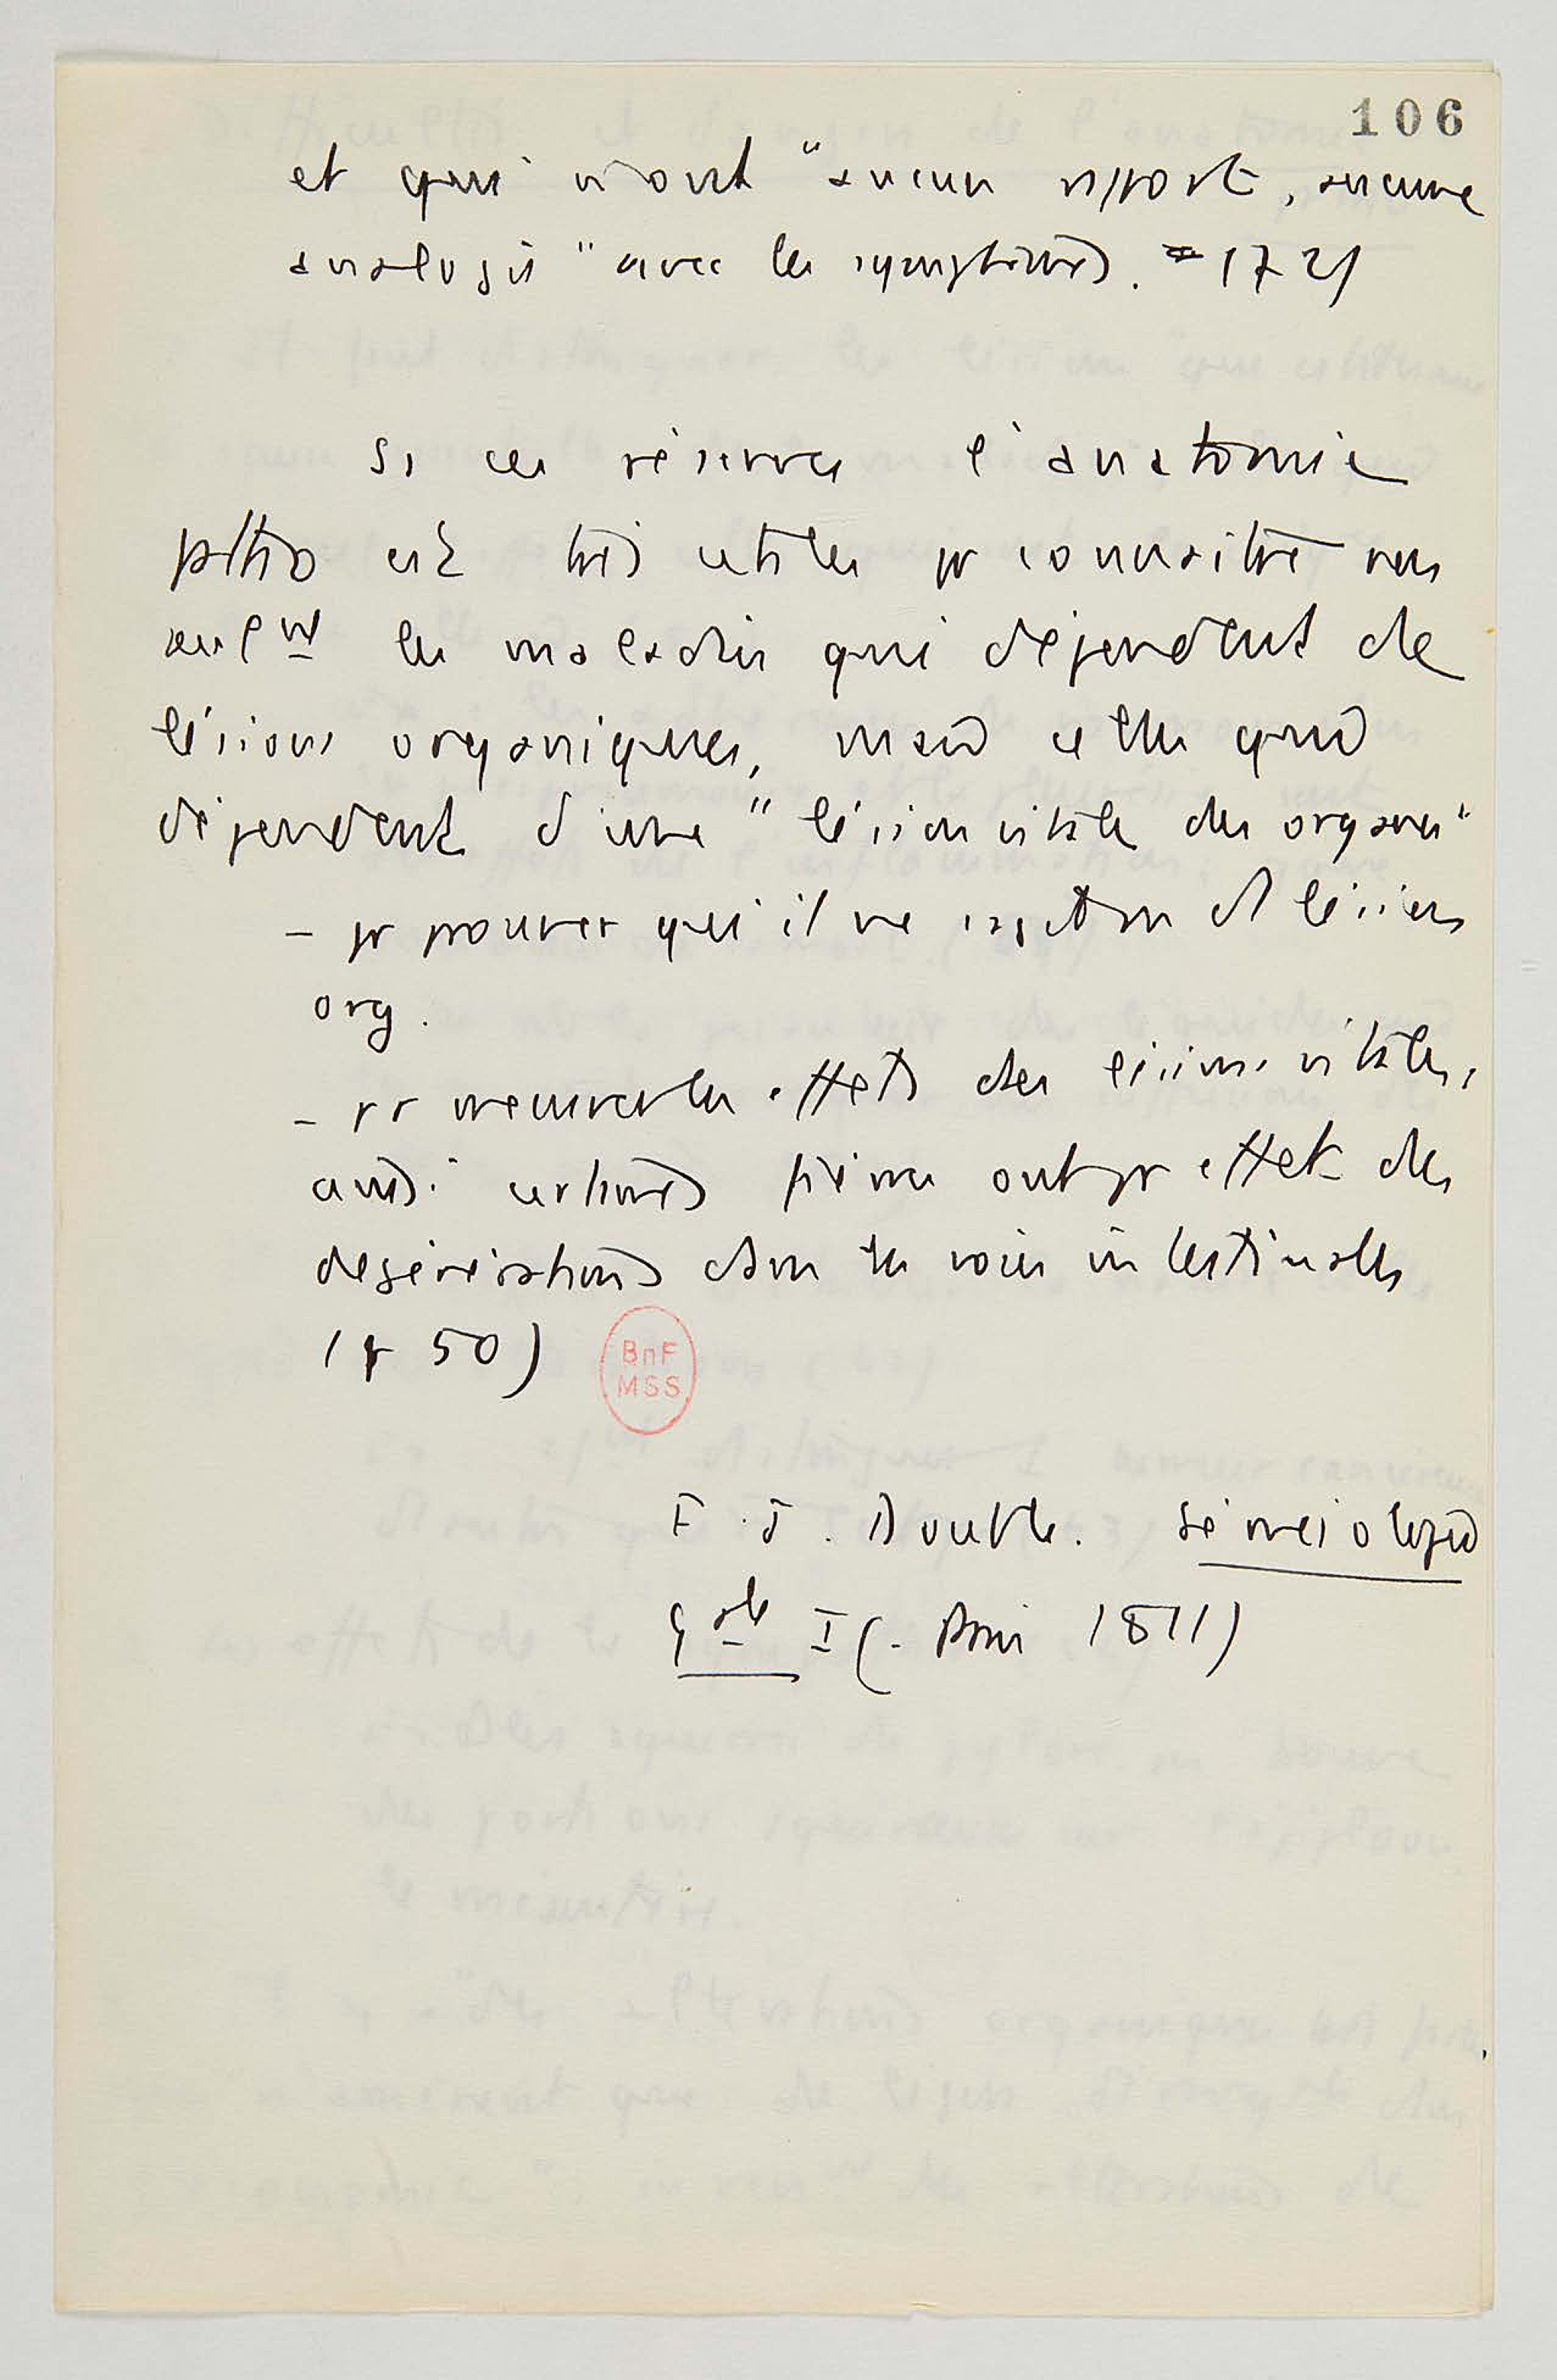 106
et qui n'ont "aucun rapport, aucune
analogie" avec les symptômes.
Si ces réserves l'anatomie
patho est très utiles pr connaître non
seulmt les maladies qui dépendent de
lésions organiques, mais celles qui
dépendent d'une "lésion vitale des organes"
- pr prouver qu'il ne s'agit de lésions
org.
- pr mesurer les effets des lésions vitales,
ainsi certaines fièvres ont pr effet des
dégénérations dans les voies intestinales
(p 50)
BnF
MSS
F. J. Double. Séméiologie
gale I (Paris 1811)